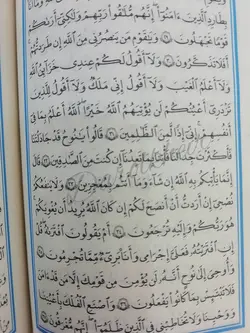 بِطَارِدِ ٱلَّذِينَ ءَامَنُوٓا۟ إِنَّهُم مُّلَٰقُوا۟ رَبِّهِمْ وَلَٰكِنِّىٓ أَرَىٰكُمْ
قَوْمًا تَجْهَلُونَ ٢٩ وَيَٰقَوْمِ مَن يَنصُرُنِى مِنَ ٱللَّهِ إِن طَرَدتُّهُمْ
أَفَلَا تَذَكَّرُونَ ٣٠ وَلَآ أَقُولُ لَكُمْ عِندِى خَزَآئِنُ ٱللَّهِ
وَلَآ أَعْلَمُ ٱلْغَيْبَ وَلَآ أَقُولُ إِنِّى مَلَكٌ وَلَآ أَقُولُ لِلَّذِينَ
تَزْدَرِىٓ أَعْيُنُكُمْ لَن يُؤْتِيَهُمُ ٱللَّهُ خَيْرًا ٱللَّهُ أَعْلَمُ بِمَا فِىٓ
أَنفُسِهِمْ إِنِّىٓ إِذًا لَّمِنَ ٱلظَّٰلِمِينَ ٣١ قَالُوا۟ يَٰنُوحُ قَدْ جَٰدَلْتَنَا
فَأَكْثَرْتَ جِدَٰلَنَا فَأْتِنَا بِمَا تَعِدُنَآ إِن كُنتَ مِنَ ٱلصَّٰدِقِينَ ٣٢ قَالَ
إِنَّمَا يَأْتِيكُم بِهِ ٱللَّهُ إِن شَآءَ وَمَآ أَنتُم بِمُعْجِزِينَ ٣٣ وَلَا يَنفَعُكُمْ
نُصْحِىٓ إِنْ أَرَدتُّ أَنْ أَنصَحَ لَكُمْ إِن كَانَ ٱللَّهُ يُرِيدُ أَن يُغْوِيَكُمْ
هُوَ رَبُّكُمْ وَإِلَيْهِ تُرْجَعُونَ ٣٤ أَمْ يَقُولُونَ ٱفْتَرَىٰهُ قُلْ
إِنِ ٱفْتَرَيْتُهُۥ فَعَلَىَّ إِجْرَامِى وَأَنَا۠ بَرِىٓءٌ مِّمَّا تُجْرِمُونَ ٣٥
وَأُوحِىَ إِلَىٰ نُوحٍ أَنَّهُۥ لَن يُؤْمِنَ مِن قَوْمِكَ إِلَّا مَن قَدْ ءَامَنَ
فَلَا تَبْتَئِسْ بِمَا كَانُوا۟ يَفْعَلُونَ ٣٦ وَٱصْنَعِ ٱلْفُلْكَ بِأَعْيُنِنَا
وَوَحْيِنَا وَلَا تُخَٰطِبْنِى فِى ٱلَّذِينَ ظَلَمُوٓا۟ إِنَّهُم مُّغْرَقُونَ ٣٧